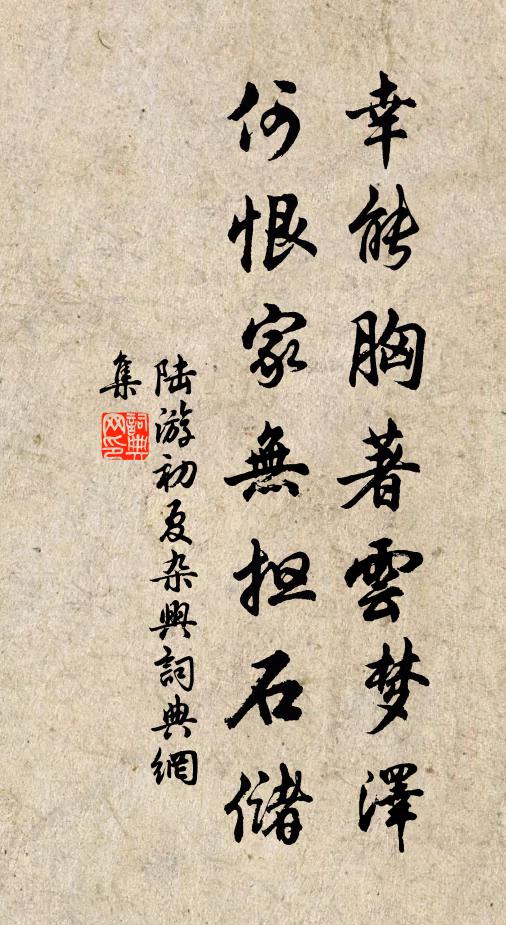 幸能胸著雲梦澤
何恨家無担石儲
陆游初夏杂興詞典網
集
詞典
网印